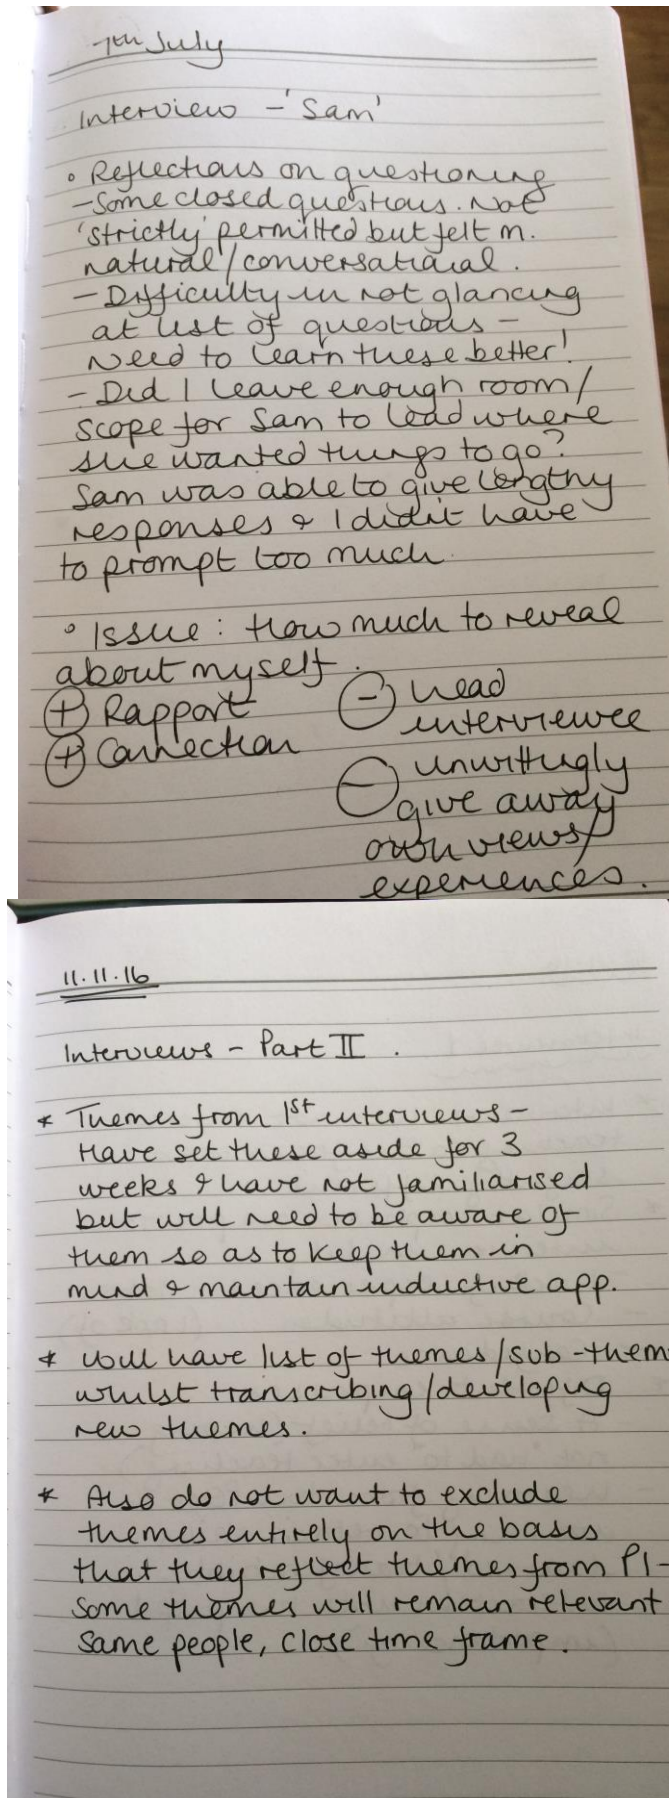 7th July
Interview - 'Sam'
• Reflections on questioning
- Some closed questions. Not
'strictly' permitted but felt m.
natural / conversational.
- Difficulty in not glancing
at list of questions -
Need to learn these better!
- Did I leave enough room /
scope for Sam to lead where
she wanted things to go?
Sam was able to give lengthy
responses & I didn't have
to prompt too much.
• Issue: How much to reveal
about myself.
+ Rapport
+ Connection
- Lead
interviewee
- unwittingly
give away
own views/
experiences.
11.11.16
Interviews - Part II.
* Themes from 1st interviews -
Have set these aside for 3
weeks & have not familiarised
but will need to be aware of
them so as to keep them in
mind & maintain inductive app.
* Will have list of themes / sub-them
whilst transcribing / developing
new themes.
* Also do not want to exclude
themes entirely on the basis
that they reflect themes from P1 -
Some themes will remain relevant
same people, close time frame.